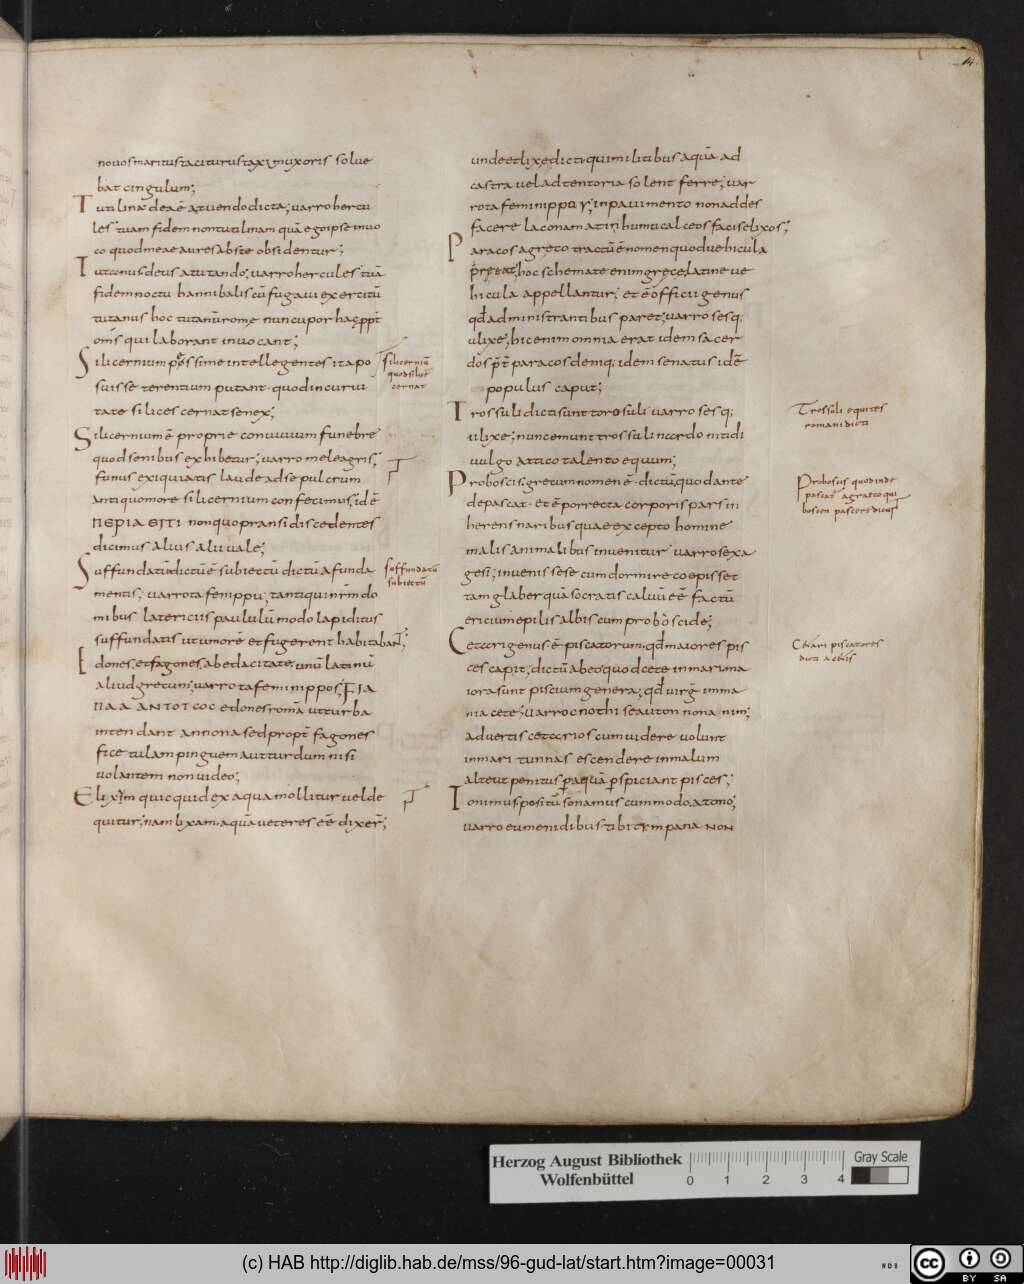 14.
novos maritus taciturus taxim uxoris solue
bat cingulum;
Tutilina deaē atuendo dicta; varro hercu
les tuam fidem non tutilinam quā ego ipse inuo
co quod meae aures abs te obsidentur;
Tutanus deus a tutando; varro hercules tuā
fidem noctu hannibalis cū fugavi exercitū
tutanus hoc tutanū rome nuncupor hac ppt
om̄s qui laborant inuocant;
Silicernium pessime intellegentes ita po
suisse terentium putant. quod incurui
tate silices cernat senex;
Silicernium ē proprie conuiuium funebre
quod senibus exhibetur; varro meleagris;
funus exequiatis laude ad sepulcrum
antiquo more silicernium confecimus; id ē
ΠΕΡΙΔΕΙΠ non quo pransi discedentes
dicimus alius alii vale;
Suffundatū dictū ē subiectū dictū a funda
mentis; varro tafemppu; tanti qui nrm do
mibus latericiis paululū modo lapidibus
suffundatis ut umorē et fugerent habitabat̄;
Edones; et fagones, ab edacitate, unū latinū
aliud grecum; varro tafeminippos;
edones romā ut turba
intendant annona sed propt̄ fagones
ficetulam pinguem aut turdum nisi
uolantem non video;
Elixum quicquid ex aqua mollitur vel de
quitur; nam lixam, aquā veteres eē dixer̄;
silicerniū
quod silicē
cernat
suffundatū
subiectū
unde et lixe dicti qui militibus aquā ad
castra vel ad tentoria solent ferre; var
ro tafeminippoy; in pauimento non addes
facere laconam atin humu calceos facis elixos;
Paracos a greco tractū ē nomen quod vehicula
preeat; hoc schemate enim grece, latine ve
hicula appellantur; et ē officii genus
qd administrantibus paret; varro sesq;
ulixe; hic enim omnia erat idem sacer
dos p̄t̄ paracos deniq; idem senatus idē
populus caput;
Trossuli dicti sunt torosuli varro sesq;
ulixe; nunc emunt trossuli incordo nitidi
vulgo attico talento equum;
Proboscis, grecum nomen ē. dictū; quod ante
depascat. et ē porrecta corporis pars in
herens naribus quae excepto homine
in alis animalibus invenitur varro sexa
gesi; invenis se se cum dormire coepisset
tam glaber quā socratis caluū eē factū
ericium e pilis albis cum proboscide;
Cetarii genus ē piscatorum; qd maiores pis
ces capit; dictū ab eo quod cete in mari ma
iora sunt piscium genera; qd virḡ imma
nia cete; varro cnothi seauton non animad
vertis cetarios cum videre volunt
in mari tunnas escendere in malum
alte ut penitus p aquā pspiciant pisces;
Tonimus positū sonamus cum modo, a tono;
varro eumenidibus tibi tympana non
Trossuli equites
romani dicti
Proboscis quod inde
pascat̄ a greco qui
boscen pascere dicūt
Cetari piscatores
dicti a cetis
Herzog August Bibliothek
Wolfenbüttel
0 1 2 3 4
Gray Scale
(c) HAB http://diglib.hab.de/mss/96-gud-lat/start.htm?image=00031
WDB
cc BY SA